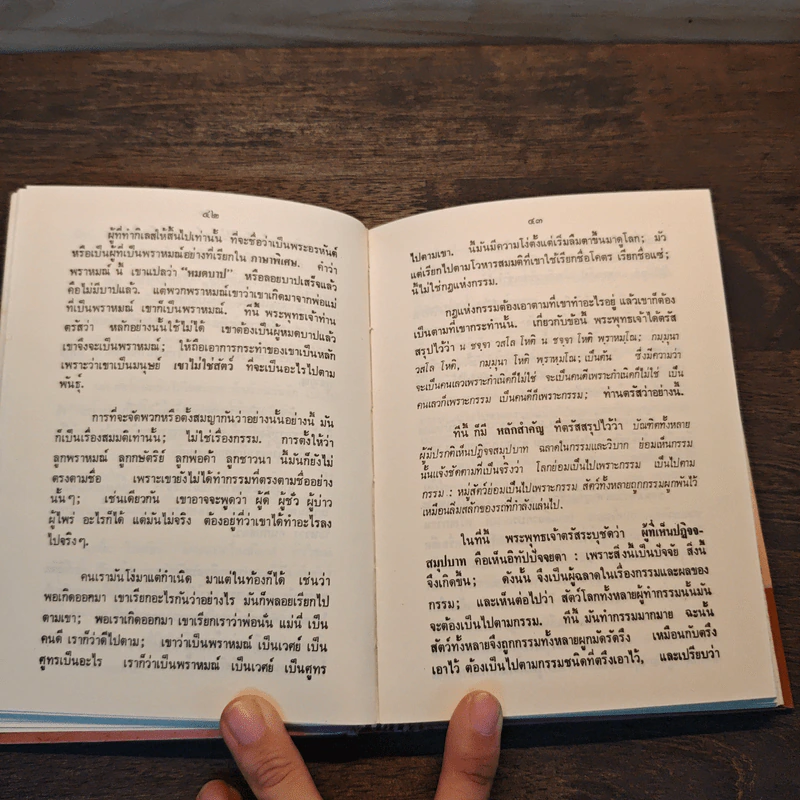 ๔๒
ผู้ที่ทำกิเลสให้สิ้นไปเท่านั้น ที่จะชื่อว่าเป็นพระอรหันต์
หรือเป็นผู้ที่เป็นพราหมณ์อย่างที่เรียกใน ภาษาพิเศษ. คำว่า
พราหมณ์ นี้ เขาแปลว่า "หมดบาป" หรือลอยบาปเสร็จแล้ว
คือไม่มีบาปแล้ว. แต่พวกพราหมณ์เขาว่าเขาเกิดมาจากพ่อแม่
ที่เป็นพราหมณ์ เขาก็เป็นพราหมณ์. ทีนี้ พระพุทธเจ้าท่าน
ตรัสว่า หลักอย่างนั้นใช้ไม่ได้ เขาต้องเป็นผู้หมดบาปแล้ว
เขาจึงจะเป็นพราหมณ์; ให้ถือเอาการกระทำของเขาเป็นหลัก
เพราะว่าเขาเป็นมนุษย์ เขาไม่ใช่สัตว์ ที่จะเป็นอะไรไปตาม
พันธุ์.
การที่จะจัดพวกหรือตั้งสมญากันว่าอย่างนั้นอย่างนี้ มัน
ก็เป็นเรื่องสมมตเท่านั้น; ไม่ใช่เรื่องกรรม. การตั้งให้ว่า
ลูกพราหมณ์ ลูกกษัตริย์ ลูกพ่อค้า ลูกชาวนา นี้มันก็ยังไม่
ตรงตามชื่อ เพราะเขายังไม่ได้ทำกรรมที่ตรงตามชื่ออย่าง
นั้นๆ; เช่นเดียวกัน เขาอาจจะพูดว่า ผู้ดี ผู้ชั่ว ผู้บ่าว
ผู้ไพร่ อะไรก็ได้ แต่มันไม่จริง ต้องอยู่ที่ว่าเขาได้ทำอะไรลง
ไปจริงๆ.
คนเรามันโง่มาแต่กำเนิด มาแต่ในท้องก็ได้ เช่นว่า
พอเกิดออกมา เขาเรียกอะไรกันว่าอย่างไร มันก็พลอยเรียกไป
ตามเขา; พอเราเกิดออกมา เขาเรียกเราว่าพ่อนั่น แม่นี่ เป็น
คนดี เราก็ว่าดีไปตาม; เขาว่าเป็นพราหมณ์ เป็นเวศย์ เป็น
ศูทรเป็นอะไร เราก็ว่าเป็นพราหมณ์ เป็นเวศย์ เป็นศูทร
๔๓
ไปตามเขา. นี้มันมีความโง่ตั้งแต่เริ่มลืมตาขึ้นมาดูโลก; มัว
แต่เรียกไปตามโวหารสมมติที่เขาใช้เรียกชื่อโคตร เรียกชื่อแซ่;
นี้ไม่ใช่กฎแห่งกรรม.
กฎแห่งกรรมต้องเอาตามที่เขาทำอะไรอยู่ แล้วเขาก็ต้อง
เป็นตามที่เขากระทำนั้น. เกี่ยวกับข้อนี้ พระพุทธเจ้าได้ตรัส
สรุปไว้ว่า น ชจฺจา วสโล โหติ น ชจฺจา โหติ พฺราหฺมโณ; กมฺมุนา
วสโล โหติ, กมฺมุนา โหติ พฺราหฺมโณ; เป็นต้น ซึ่งมีความว่า
จะเป็นคนเลวเพราะกำเนิดก็ไม่ใช่ จะเป็นคนดีเพราะกำเนิดก็ไม่ใช่ เป็น
คนเลวก็เพราะกรรม เป็นคนดีก็เพราะกรรม; ท่านตรัสว่าอย่างนี้.
ทีนี้ ก็มี หลักสำคัญ ที่ตรัสสรุปไว้ว่า บัณฑิตทั้งหลาย
ผู้มีปรกติเห็นปฏิจจสมุปบาท ฉลาดในกรรมและวิบาก ย่อมเห็นกรรม
นั้นแจ้งชัดตามที่เป็นจริงว่า โลกย่อมเป็นไปเพราะกรรม เป็นไปตาม
กรรม : หมู่สัตว์ย่อมเป็นไปเพราะกรรม สัตว์ทั้งหลายถูกกรรมผูกพันไว้
เหมือนลิ่มสลักของรถที่กำลังแล่นไป.
ในที่นี้ พระพุทธเจ้าตรัสระบุชัดว่า ผู้ที่เห็นปฏิจจ-
สมุปบาท คือเห็นอิทัปปัจจยตา : เพราะสิ่งนี้เป็นปัจจัย สิ่งนี้
จึงเกิดขึ้น; ดังนั้น จึงเป็นผู้ฉลาดในเรื่องกรรมและผลของ
กรรม; และเห็นต่อไปว่า สัตว์โลกทั้งหลายผู้ทำกรรมนั้นมัน
จะต้องเป็นไปตามกรรม. ทีนี้ มันทำกรรมมากมาย ฉะนั้น
สัตว์ทั้งหลายจึงถูกกรรมทั้งหลายผูกมัดรัดรึง เหมือนกับตรึง
เอาไว้ ต้องเป็นไปตามกรรมชนิดที่ตรึงเอาไว้, และเปรียบว่า